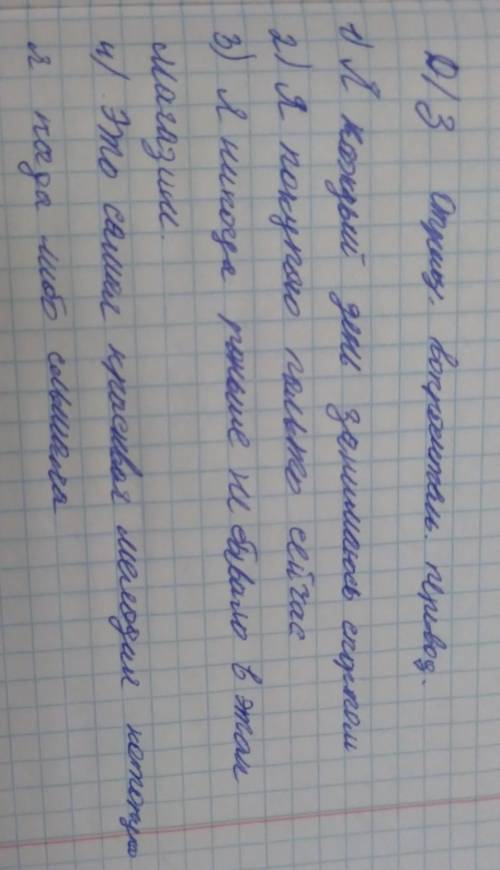 Д/З Отриц. вопросительн. перевод.
1) Я каждый день занимаюсь спортом
2) Я покупаю только сейчас
3) Я никогда раньше не бывало в этом
магазин.
4) Это самая красивая мелодия которую
я когда либо слышала